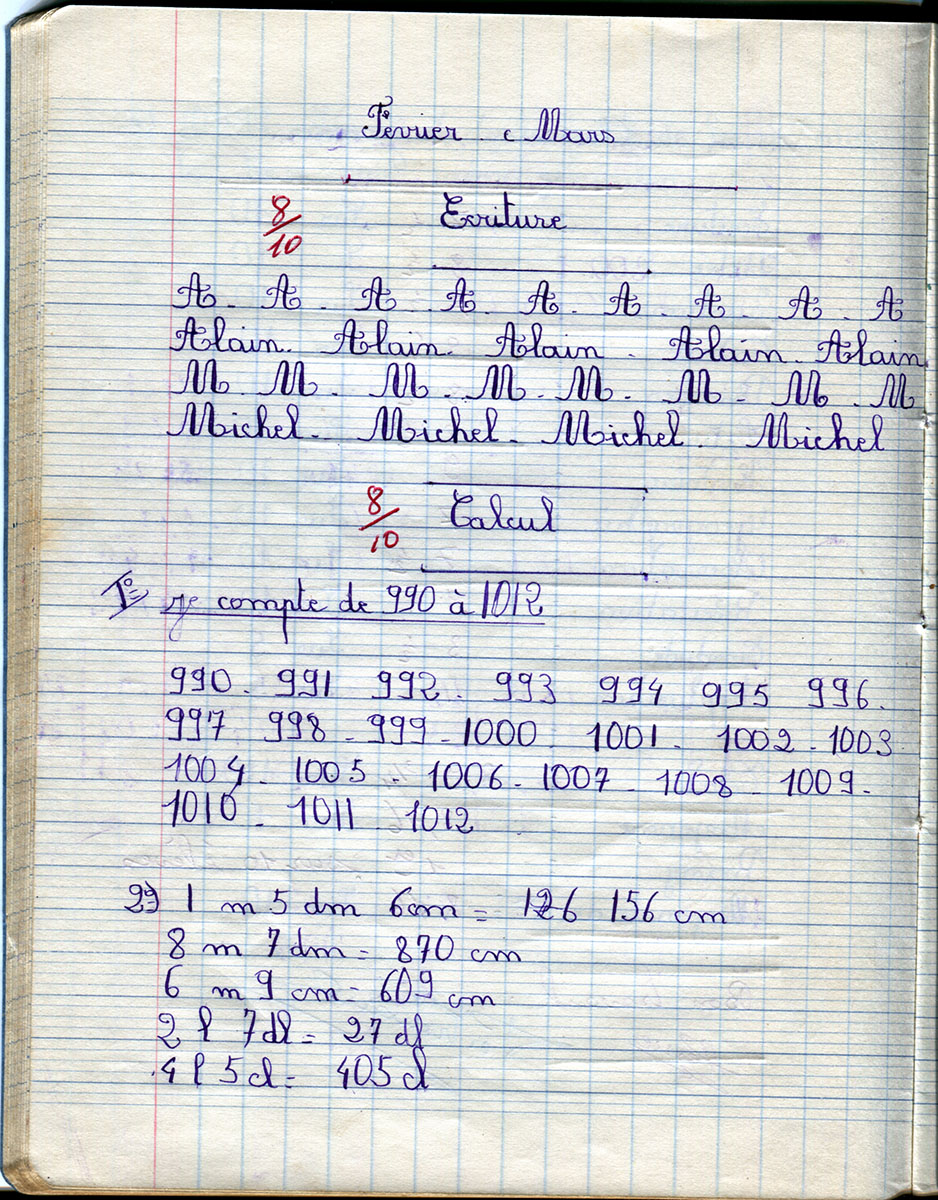 Février . Mars
8/10 Ecriture
A . A . A . A . A . A . A . A . A
Alain . Alain . Alain . Alain . Alain
M . M . M . M . M . M . M . M
Michel . Michel . Michel . Michel
8/10 Calcul
1º je compte de 990 à 1012
990 . 991 992 . 993 994 995 996 .
997 998 . 999 . 1000 1001 . 1002 . 1003
1004 . 1005 . 1006 . 1007 1008 . 1009 .
1010 . 1011 1012
2º) 1 m 5 dm 6 cm = 126 156 cm
8 m 7 dm = 870 cm
6 m 9 cm = 609 cm
2 l 7 dl = 27 dl
4 l 5 cl = 405 cl